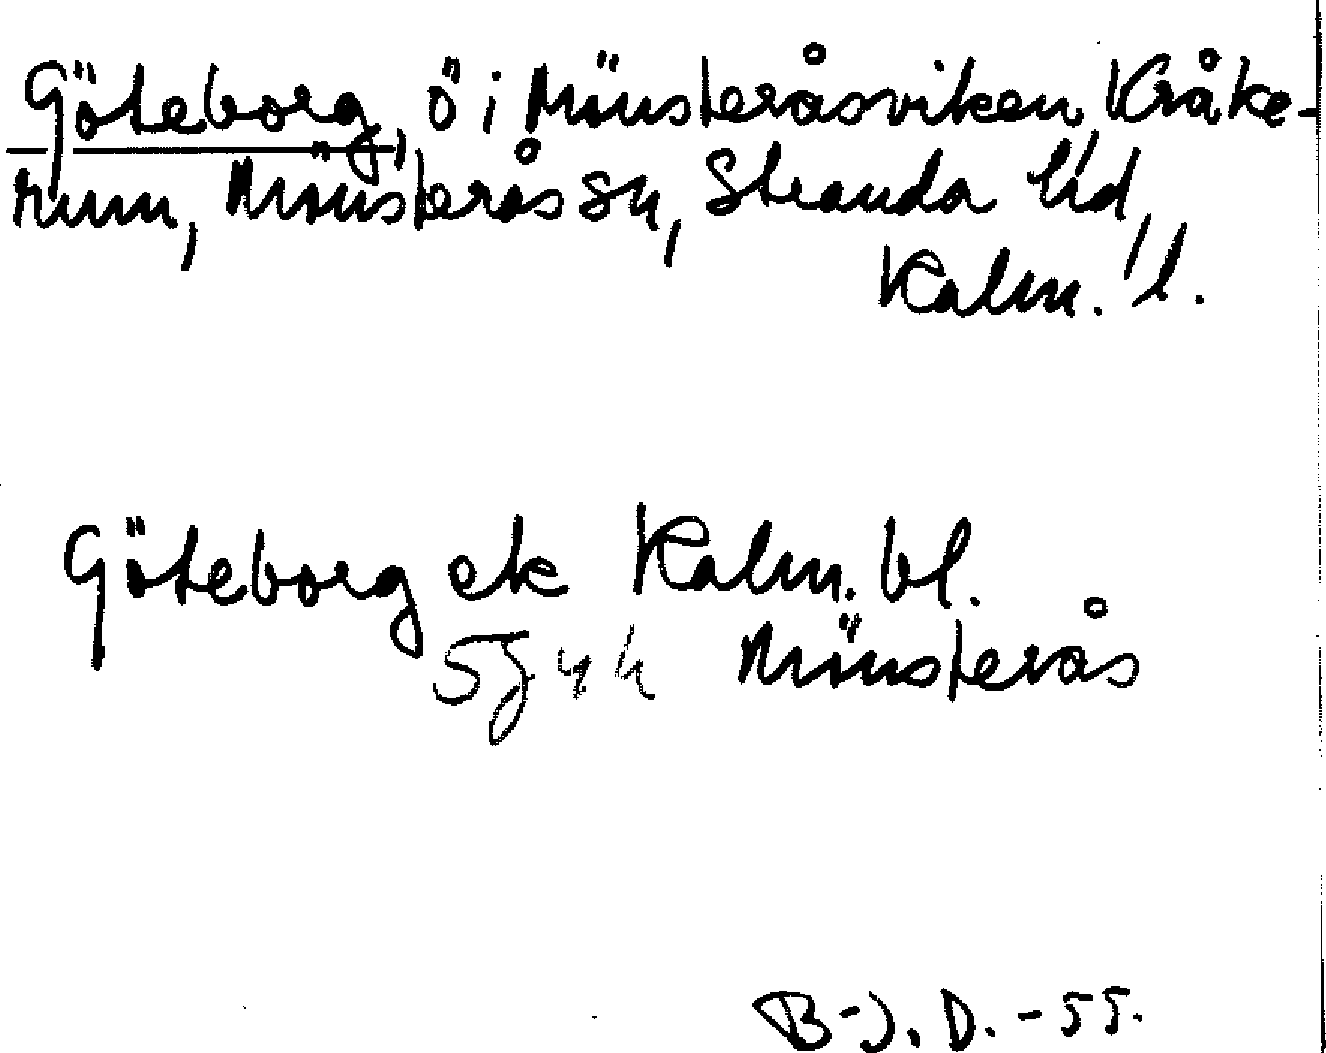 Göteborg, ö i Mönsteråsviken, Kråke-
rum, Mönsterås sn, Stranda hd,
Kalm. l.
Göteborg ek Kalm. bl.
5g4h Mönsterås
B-J. D. -55.